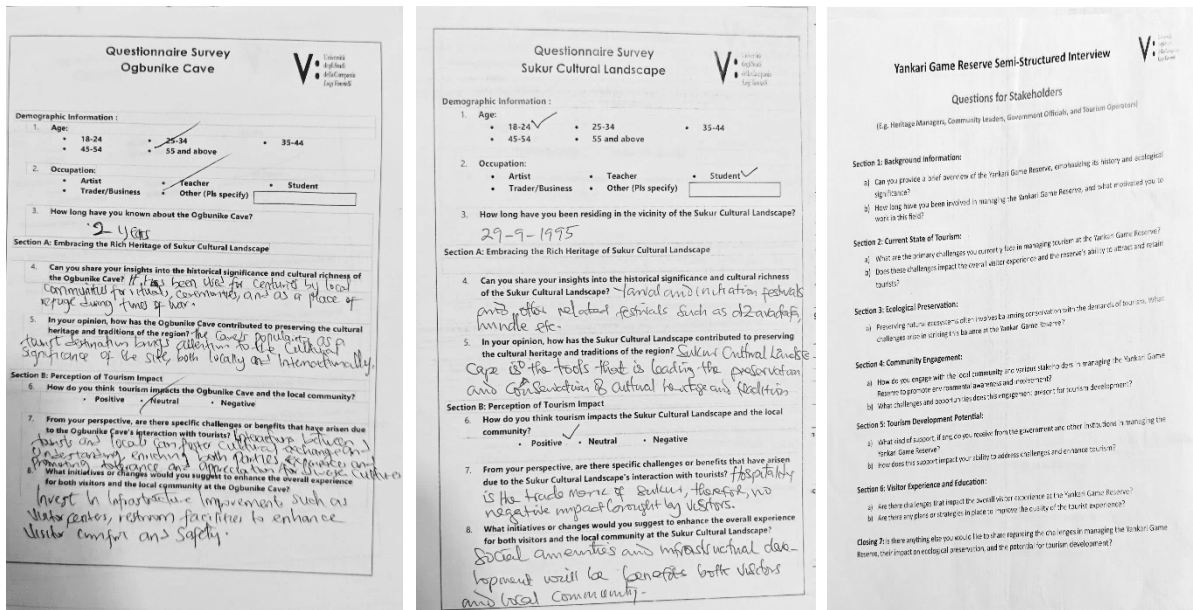 Questionnaire Survey
Ogbunike Cave
V:
Università
degli Studi
della Campania
Luigi Vanvitelli
Demographic Information :
1. Age:
• 18-24 • 25-34 • 35-44
• 45-54 • 55 and above
2. Occupation:
• Artist • Teacher • Student
• Trader/Business • Other (Pls specify)
3. How long have you known about the Ogbunike Cave?
2 years
Section A: Embracing the Rich Heritage of Sukur Cultural Landscape
4. Can you share your insights into the historical significance and cultural richness of
the Ogbunike Cave? It has been used for centuries by local
communities for rituals, ceremonies, and as a place of
refuge during times of war.
5. In your opinion, how has the Ogbunike Cave contributed to preserving the cultural
heritage and traditions of the region? The cave's popularity as a
tourist destination brings attention to the Cultural
Significance of the site, both locally and Internationally.
Section B: Perception of Tourism Impact
6. How do you think tourism impacts the Ogbunike Cave and the local community?
• Positive • Neutral • Negative
7. From your perspective, are there specific challenges or benefits that have arisen due
to the Ogbunike Cave's interaction with tourists? Interactions between
tourist and local can foster cultural exchange and
Understanding enriching both parties experiences and
Promoting tolerance and appreciation for diverse cultures
8. What initiatives or changes would you suggest to enhance the overall experience
for both visitors and the local community at the Ogbunike Cave?
Invest In Infrastructure Improvements such as
Visitor centers, restroom facilities to enhance
Visitor comfort and Safety.
Questionnaire Survey
Sukur Cultural Landscape
V:
Università
degli Studi
della Campania
Luigi Vanvitelli
Demographic Information :
1. Age:
• 18-24 • 25-34 • 35-44
• 45-54 • 55 and above
2. Occupation:
• Artist • Teacher • Student
• Trader/Business • Other (Pls specify)
3. How long have you been residing in the vicinity of the Sukur Cultural Landscape?
29-9-1995
Section A: Embracing the Rich Heritage of Sukur Cultural Landscape
4. Can you share your insights into the historical significance and cultural richness
of the Sukur Cultural Landscape? and initiation festivals
and other related festivals such as
etc.
5. In your opinion, how has the Sukur Cultural Landscape contributed to preserving
the cultural heritage and traditions of the region? Sukur Cultural Landse-
Cape is the tools that is leading the preservation
and Consevation of cultural heritage and tradition
Section B: Perception of Tourism Impact
6. How do you think tourism impacts the Sukur Cultural Landscape and the local
community?
• Positive • Neutral • Negative
7. From your perspective, are there specific challenges or benefits that have arisen
due to the Sukur Cultural Landscape's interaction with tourists? Hospitality
is the trade mark of Sukur, therefor, no
negative impact brought by visitors.
8. What initiatives or changes would you suggest to enhance the overall experience
for both visitors and the local community at the Sukur Cultural Landscape?
Social amenities and infrastructual deve-
lopment will be benefits both visitors
and local Community.
V:
Yankari Game Reserve Semi-Structured Interview
Questions for Stakeholders
(E.g. Heritage Managers, Community Leaders, Government Officials, and Tourism Operators)
Section 1: Background Information:
a) Can you provide a brief overview of the Yankari Game Reserve, emphasizing its history and ecological
significance?
b) How long have you been involved in managing the Yankari Game Reserve, and what motivated you to
work in this field?
Section 2: Current State of Tourism:
a) What are the primary challenges you currently face in managing tourism at the Yankari Game Reserve?
a) Does these challenges impact the overall visitor experience and the reserve's ability to attract and retain
tourists?
Section 3: Ecological Preservation:
a) Preserving natural ecosystems often involves balancing conservation with the demands of tourism. What
challenges arise in striking this balance at the Yankari Game Reserve?
Section 4: Community Engagement:
a) How do you engage with the local community and various stakeholders in managing the Yankari Game
Reserve to promote environmental awareness and involvement?
b) What challenges and opportunities does this engagement present for tourism development?
Section 5: Tourism Development Potential:
a) What kind of support, if any, do you receive from the government and other institutions in managing the
Yankari Game Reserve?
b) How does this support impact your ability to address challenges and enhance tourism?
Section 6: Visitor Experience and Education:
a) Are there challenges that impact the overall visitor experience at the Yankari Game Reserve?
b) Are there any plans or strategies in place to improve the quality of the tourist experience?
Closing 7: Is there anything else you would like to share regarding the challenges in managing the Yankari Game
Reserve, their impact on ecological preservation, and the potential for tourism development?